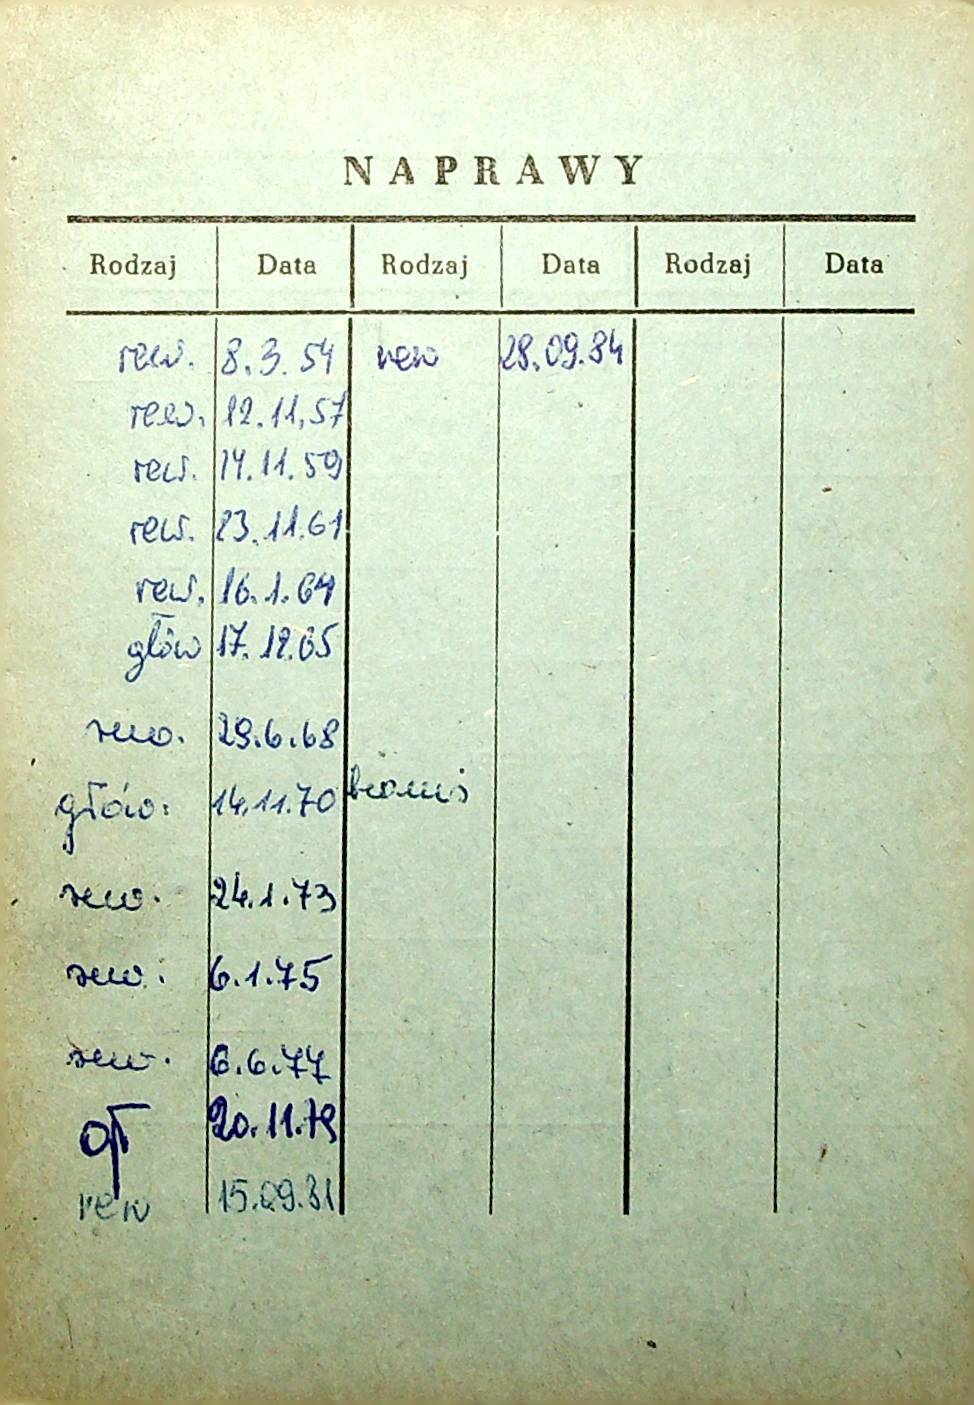 NAPRAWY
Rodzaj Data Rodzaj Data Rodzaj Data
rew. 8.3.54 rew 28.09.84
rew. 12.11.57
rew. 14.11.59
rew. 23.11.61
rew. 16.1.64
głów 17.12.65
rew. 29.6.68
głów. 14.11.70
rew. 24.1.73
rew. 6.1.75
rew. 6.6.77
20.11.79
rew 15.09.81